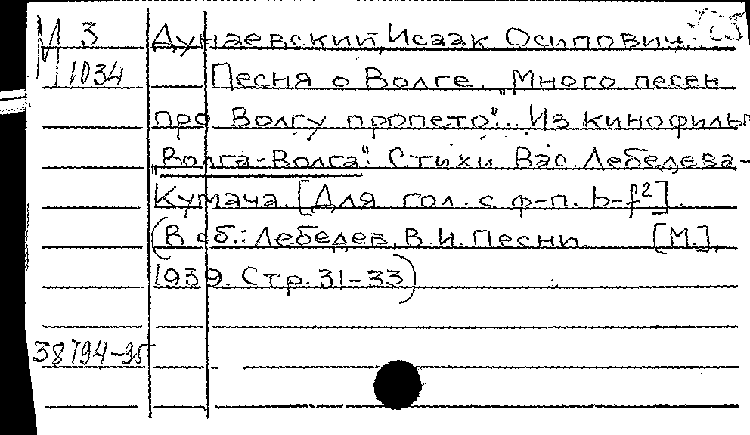 М 3 Дунаевский, Исаак Осипович.
1034 Песня о Волге. „Много песен
про Волгу пропето"... Из кинофильм
„Волга-Волга". Стихи Вас. Лебедева-
Кумача. [Для гол. с ф-п. b-f²].
(В сб.: Лебедев, В.И. Песни [М.],
1939. Стр. 31-33)
38794-95